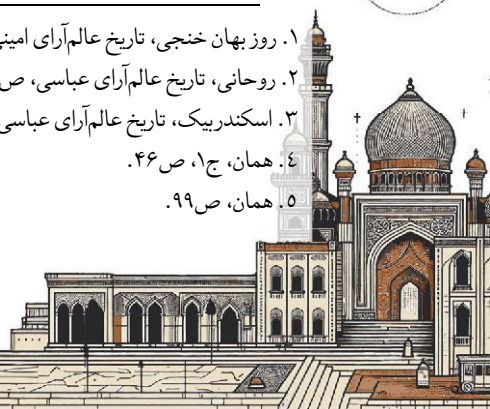 ۱. روز بهان خنجی، تاریخ عالم‌آرای امینی
۲. روحانی، تاریخ عالم‌آرای عباسی، ص
۳. اسکندربیک، تاریخ عالم‌آرای عباسی
٤. همان، ج۱، ص۴۶.
٥. همان، ص۹۹.